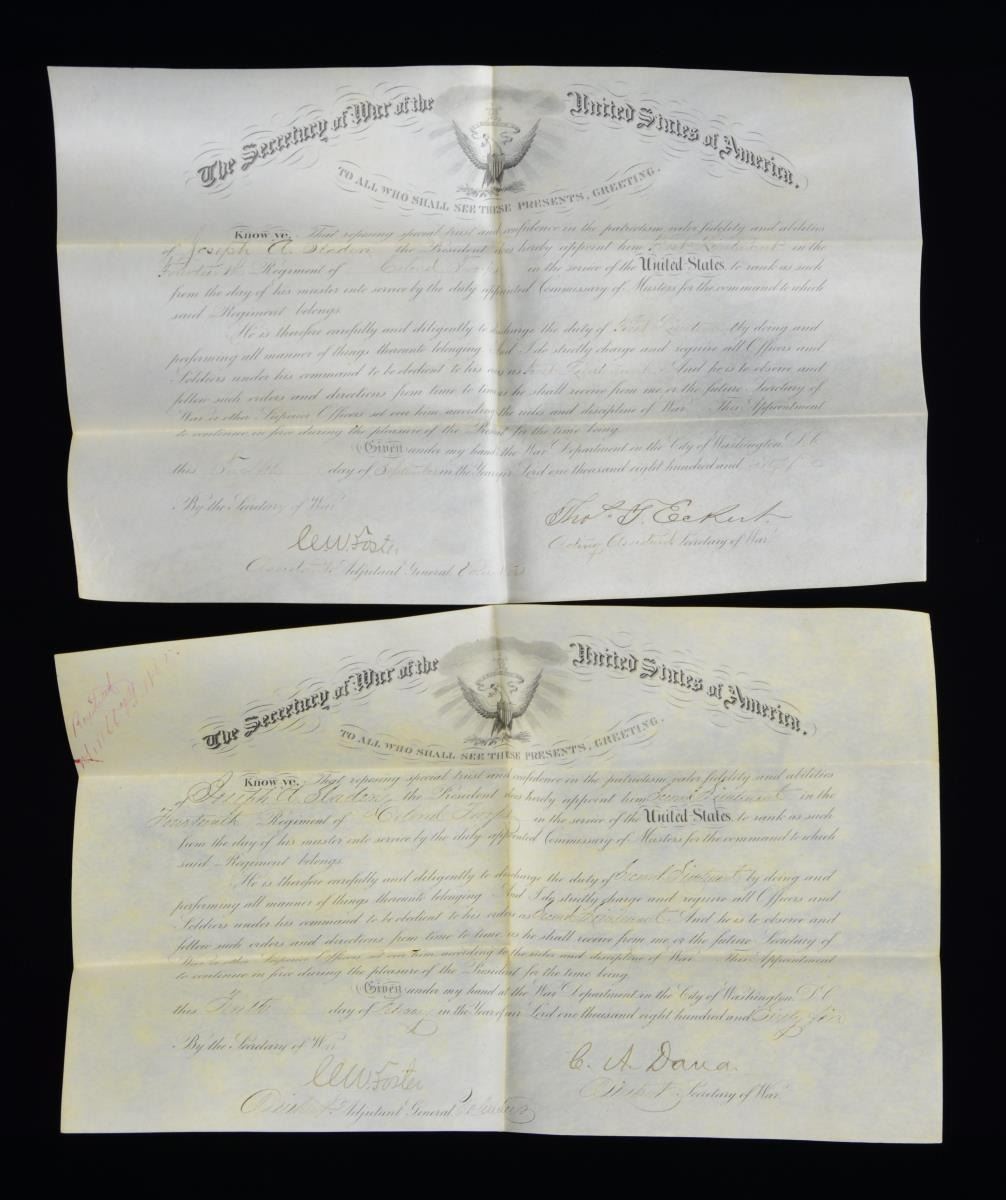 The Secretary of War of the United States of America.
TO ALL WHO SHALL SEE THESE PRESENTS, GREETING.
Know ye, That reposing special trust and confidence in the patriotism, valor, fidelity and abilities
of Joseph A. Sladen, the President does hereby appoint him First Lieutenant in the
Regiment of Colored Troops in the service of the United States, to rank as such
from the day of his muster into service by the duly appointed Commissary of Musters for the command to which
said Regiment belongs.
He is therefore carefully and diligently to discharge the duty of First Lieutenant by doing and
performing all manner of things thereunto belonging. And I do strictly charge and require all Officers and
Soldiers under his command to be obedient to his orders as First Lieutenant. And he is to observe and
follow such orders and directions from time to time as he shall receive from me or the future Secretary of
War or other Superior Officers set over him according to the rules and discipline of War. This Appointment
to continue in force during the pleasure of the President for the time being.
Given under my hand at the War Department in the City of Washington, D.C.
this day of in the Year of our Lord one thousand eight hundred and
By the Secretary of War
Tho. T. Eckert.
Acting Assistant Secretary of War
C W. Foster
Assistant Adjutant General Volunteers
The Secretary of War of the United States of America.
TO ALL WHO SHALL SEE THESE PRESENTS, GREETING.
Know ye, That reposing special trust and confidence in the patriotism, valor, fidelity and abilities
of Joseph A. Sladen, the President does hereby appoint him Second Lieutenant in the
Fourteenth Regiment of Colored Troops in the service of the United States, to rank as such
from the day of his muster into service by the duly appointed Commissary of Musters for the command to which
said Regiment belongs.
He is therefore carefully and diligently to discharge the duty of Second Lieutenant by doing and
performing all manner of things thereunto belonging. And I do strictly charge and require all Officers and
Soldiers under his command to be obedient to his orders as Second Lieutenant. And he is to observe and
follow such orders and directions from time to time, as he shall receive from me, or the future Secretary of
War or other Superior Officers set over him, according to the rules and discipline of War. This Appointment
to continue in force during the pleasure of the President for the time being.
Given under my hand at the War Department in the City of Washington, D.C.
this Tenth day of February in the Year of our Lord one thousand eight hundred and Sixty five
By the Secretary of War
C. A. Dana.
Assistant Secretary of War
C W. Foster
Assistant Adjutant General Volunteers